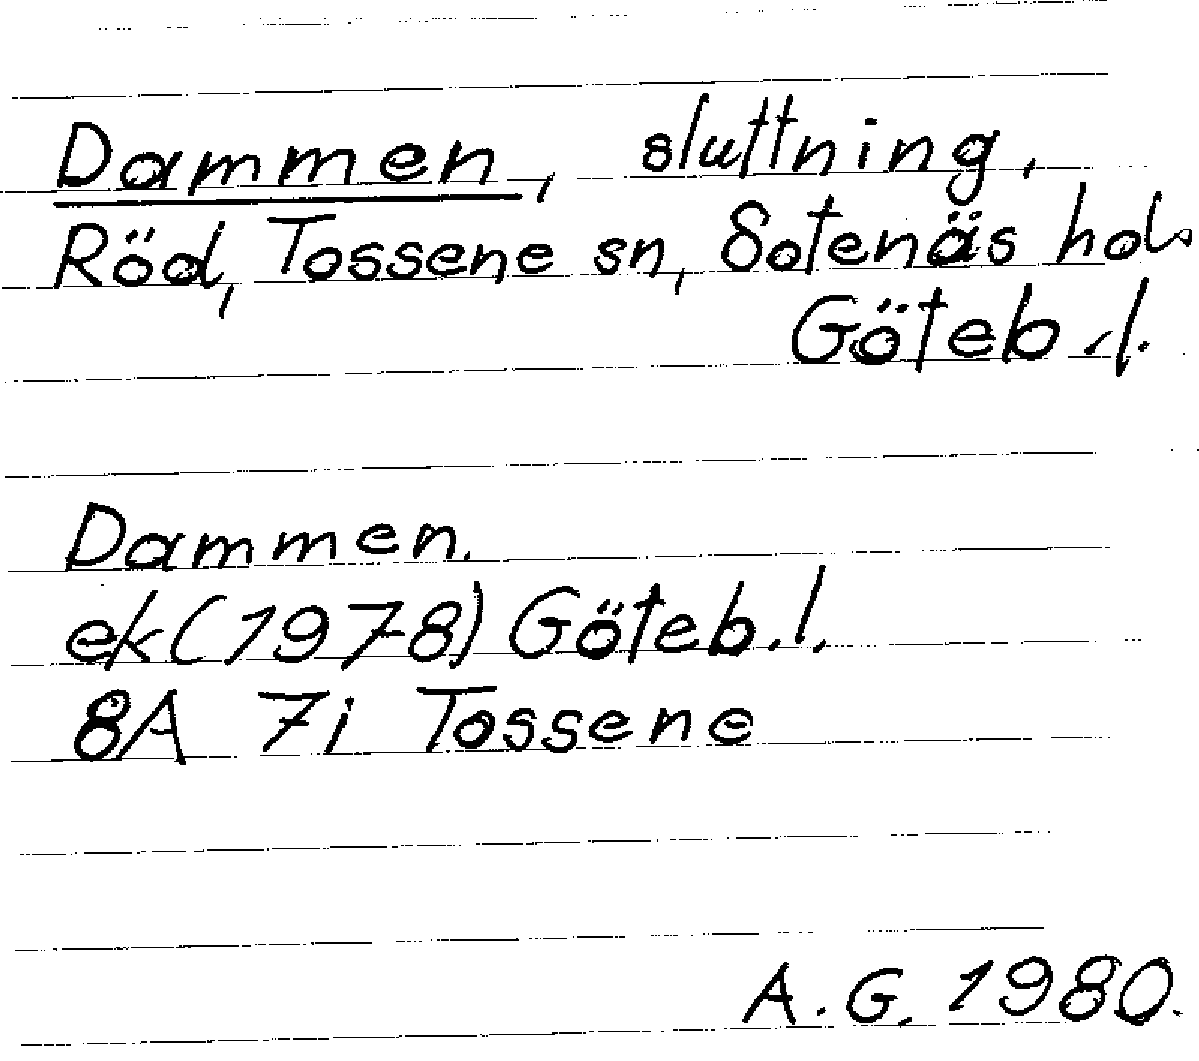 Dammen, sluttning,
Röd, Tossene sn, Sotenäs hd.
Göteb. l.
Dammen.
ek (1978) Göteb. l.
8A 7i Tossene
A. G. 1980.